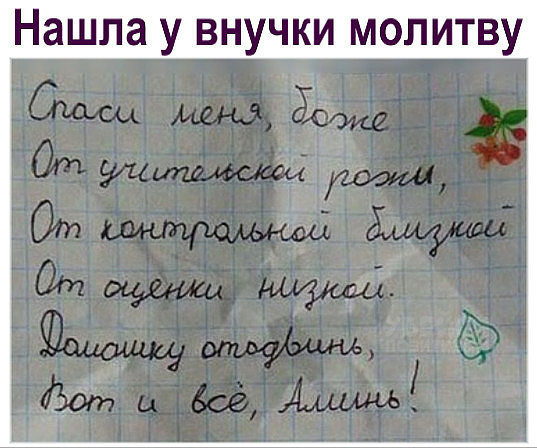 Нашла у внучки молитву
Спаси меня, боже
От учительской рожи,
От контрольной близкой
От оценки низкой.
Домашку отодвинь,
Вот и всё, Аминь!